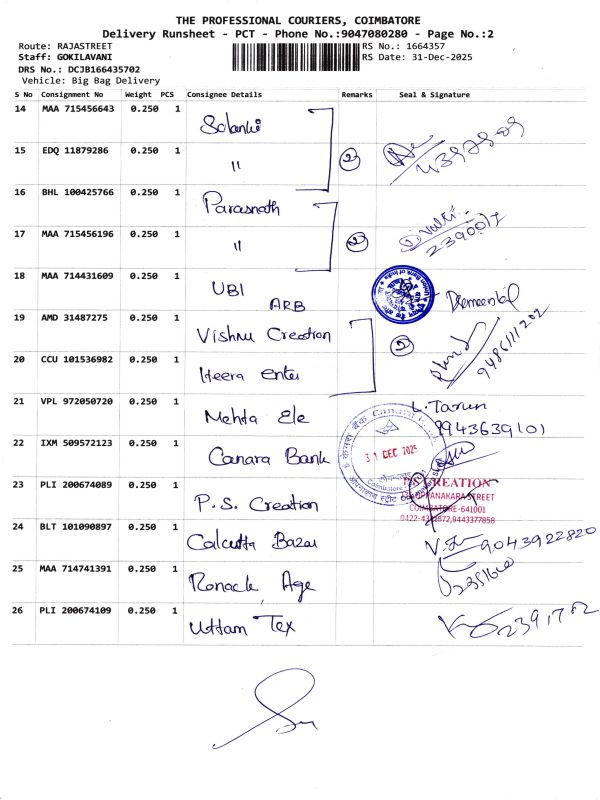 THE PROFESSIONAL COURIERS, COIMBATORE
Delivery Runsheet - PCT - Phone No.:9047080280 - Page No.:2
Route: RAJASTREET
RS No.: 1664357
Staff: GOKILAVANI
RS Date: 31-Dec-2025
DRS No.: DCJB166435702
Vehicle: Big Bag Delivery
S No Consignment No Weight PCS Consignee Details Remarks Seal & Signature
14 MAA 715456643 0.250 1 Solanki
15 EDQ 11879286 0.250 1 " 2
16 BHL 100425766 0.250 1 Parasnath
17 MAA 715456196 0.250 1 " 2 2390017
18 MAA 714431609 0.250 1 UBI ARB
Union Bank of India
19 AMD 31487275 0.250 1 Vishnu Creation 2
20 CCU 101536982 0.250 1 Heera Enter 9486111202
21 VPL 972050720 0.250 1 Mehta Ele L. Tarun
9943639101
22 IXM 509572123 0.250 1 Canara Bank
केनरा बैंक Canara
31 DEC 2025
Coimbatore
23 PLI 200674089 0.250 1 P.S. Creation
CREATION
STREET
COIMBATORE-641001
9443377858
24 BLT 101090897 0.250 1 Calcutta Bazar 9043922820
25 MAA 714741391 0.250 1 Ronack Age
26 PLI 200674109 0.250 1 Uttam Tex 2391702